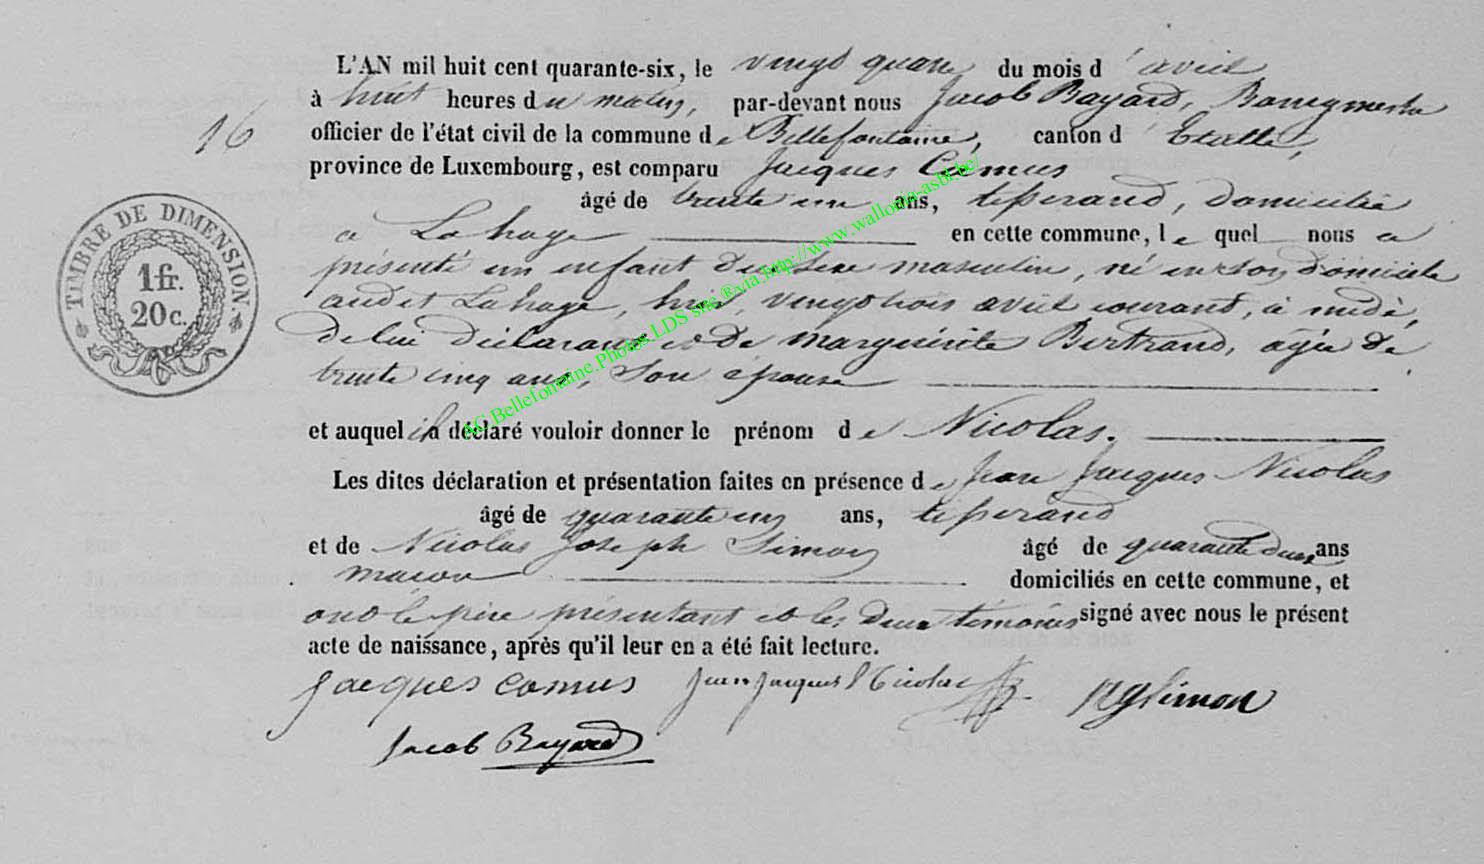 L'AN mil huit cent quarante-six, le vingt quatre du mois d'avril
16
à huit heures du matin, par-devant nous Jacob Bayard, Bourgmestre
officier de l'état civil de la commune de Bellefontaine, canton d'Etalle,
province de Luxembourg, est comparu Jacques Camus
âgé de trente un ans, tisserand, domicilié
a Lahage en cette commune, lequel nous a
présenté un enfant du sexe masculin, né en son domicile
audit Lahage, hier, vingt trois avril courant, à midi,
de lui déclarant et de Marguerite Bertrand, agée de
trente cinq ans, son épouse
et auquel il a déclaré vouloir donner le prénom de Nicolas.
Les dites déclaration et présentation faites en présence de Jean Jacques Nicolas
âgé de quarante un ans, tisserand
et de Nicolas Joseph Simon âgé de quarante deux ans
macon domiciliés en cette commune, et
ont le père présentant et les deux témoins signé avec nous le présent
acte de naissance, après qu'il leur en a été fait lecture.
Jacques Camus Jean Jacques Nicolas NJ Simon
Jacob Bayard
TIMBRE DE DIMENSION.
1 fr.
20 c.
AC Bellefontaine.Photos LDS site ®via http://www.wallonia-asbl.be/